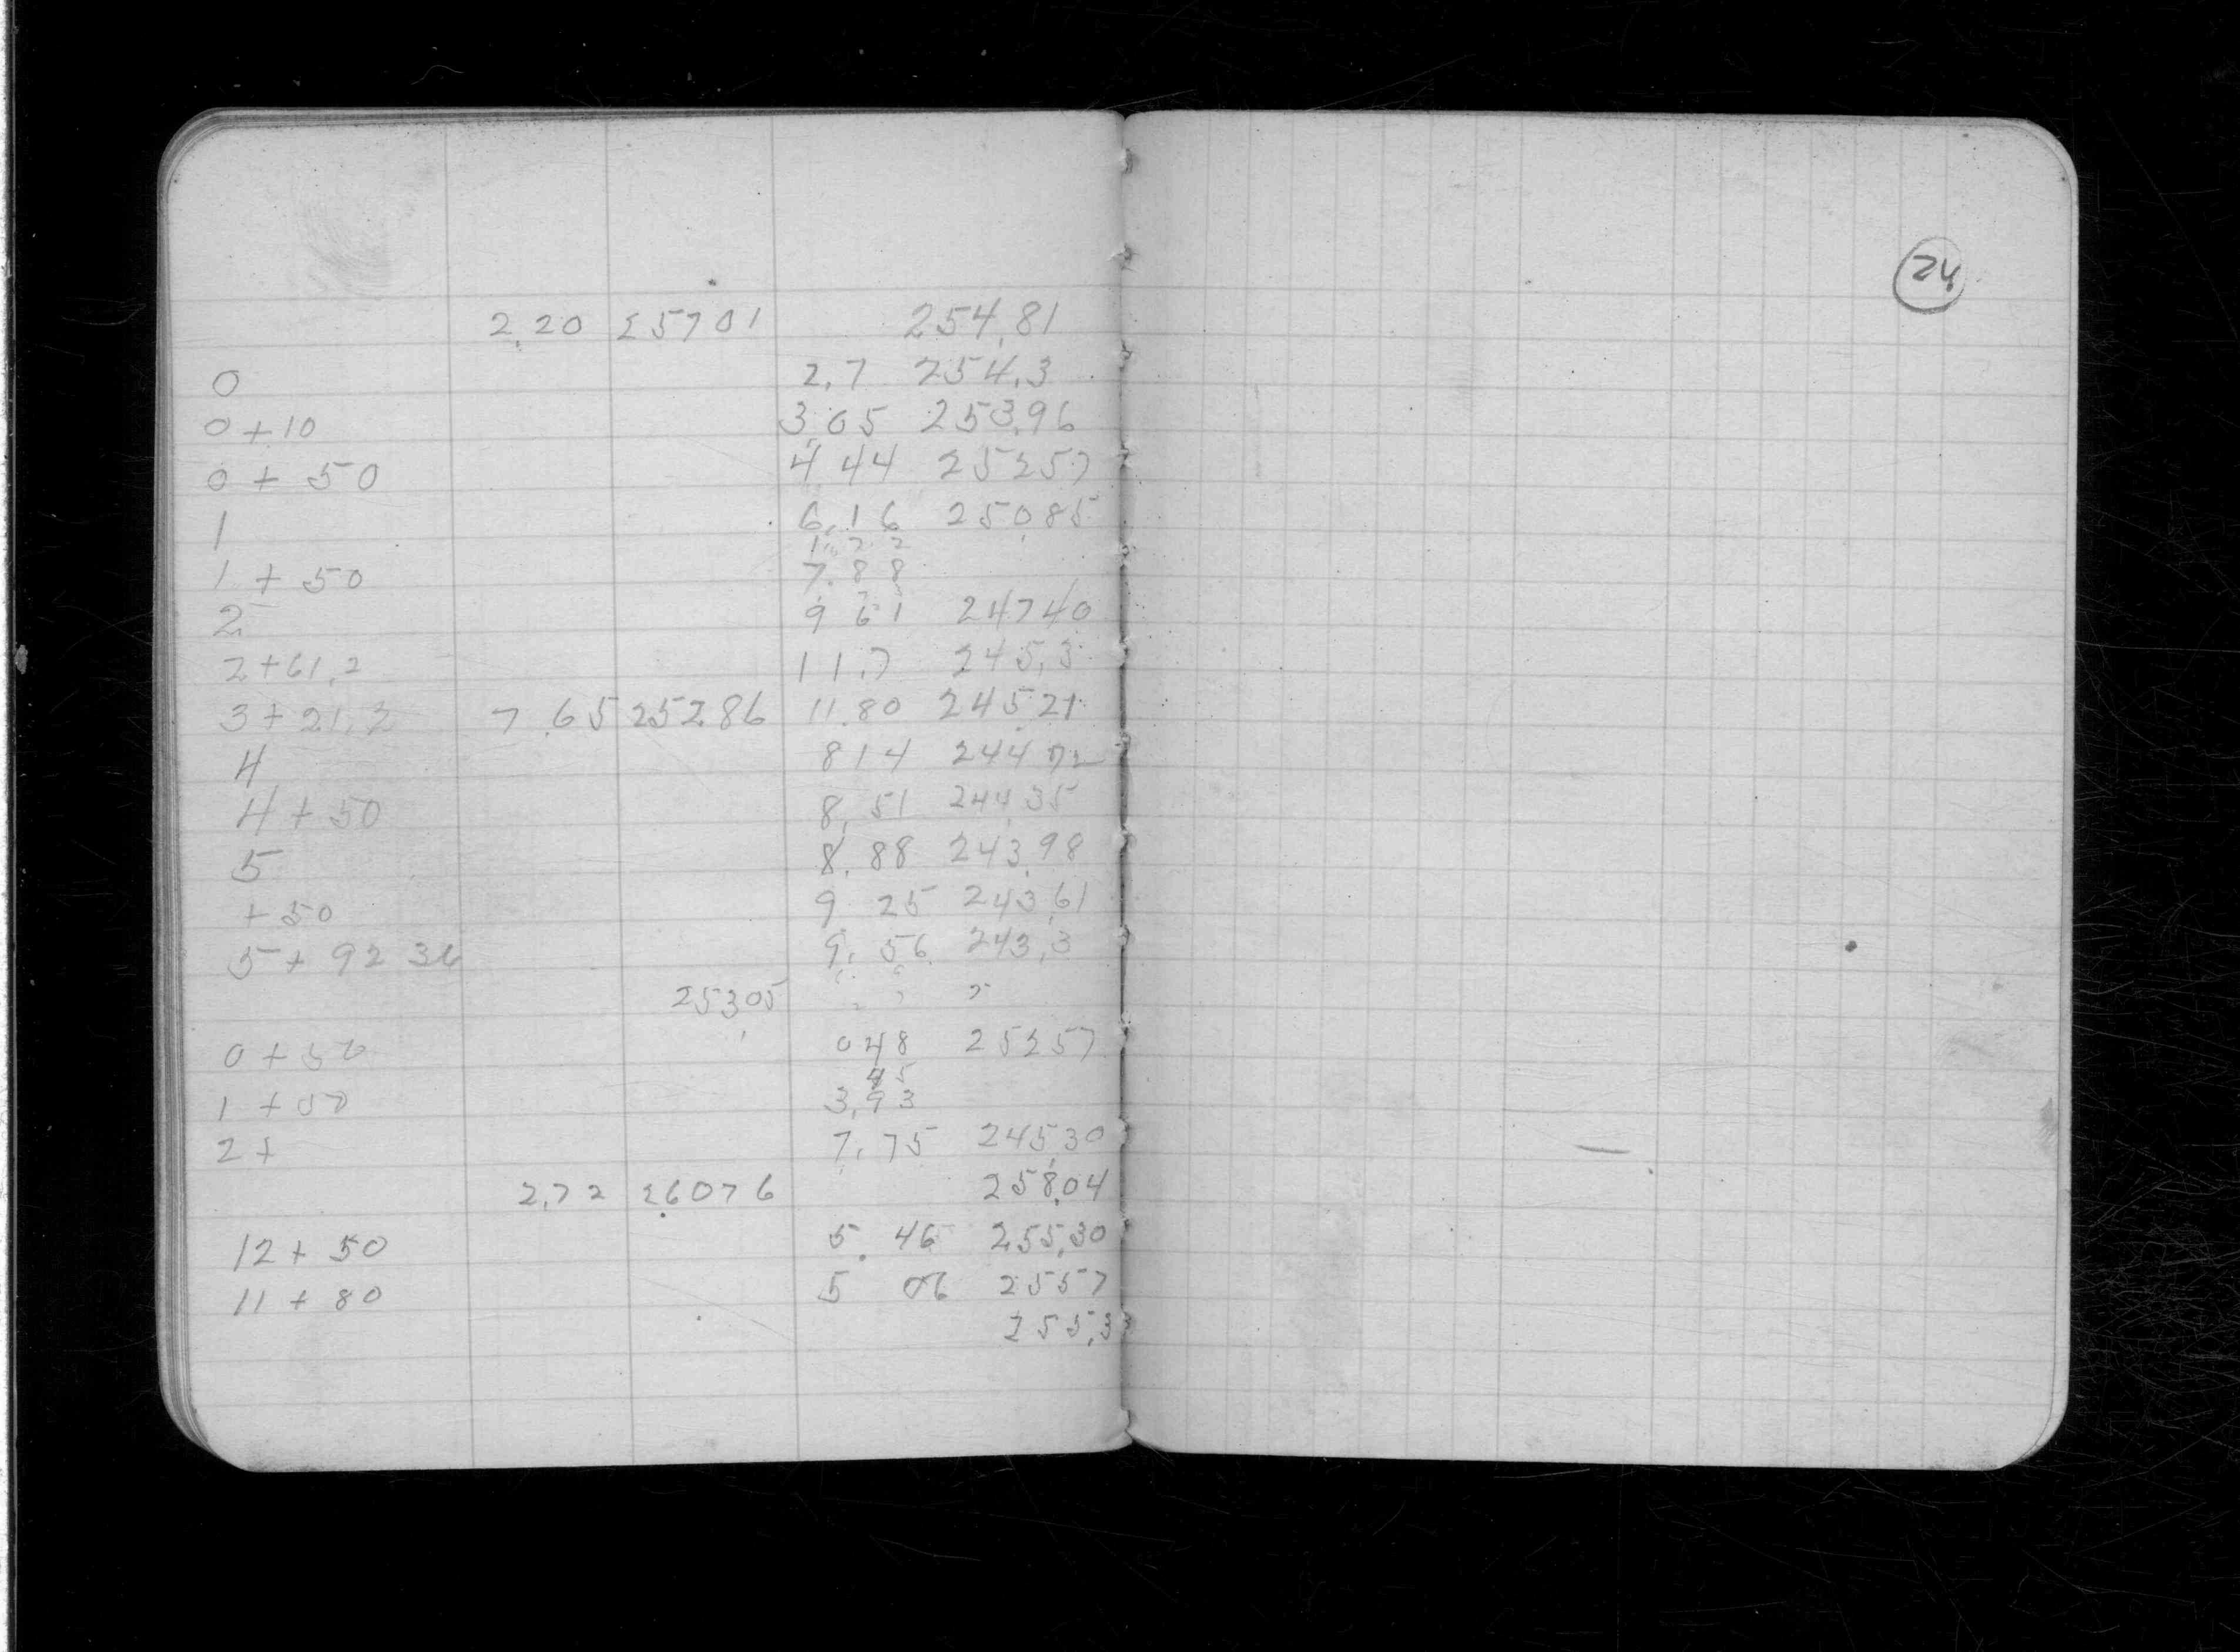 2.20 257 01 254.81
0 2.7 254.3
0 + 10 3.05 253.96
0 + 50 4 44 252 57
1 6.16 250.85
1.72
1 + 50 7.88
2 9 61 247 40
2 + 61.2 11.7 245.3
3 + 21.2 7.65 252.86 11.80 245.21
4 8 14 244 72
4 + 50 8.51 244.35
5 8.88 243.98
+ 50 9 25 243.61
5 + 92 36 9.56 243.3
253.05
0 + 50 0 48 252 57
45
1 + 00 3.93
2 + 7.75 245.30
2.72 260 76 258.04
12 + 50 5.46 255.30
11 + 80 5 06 255 7
255.3
24